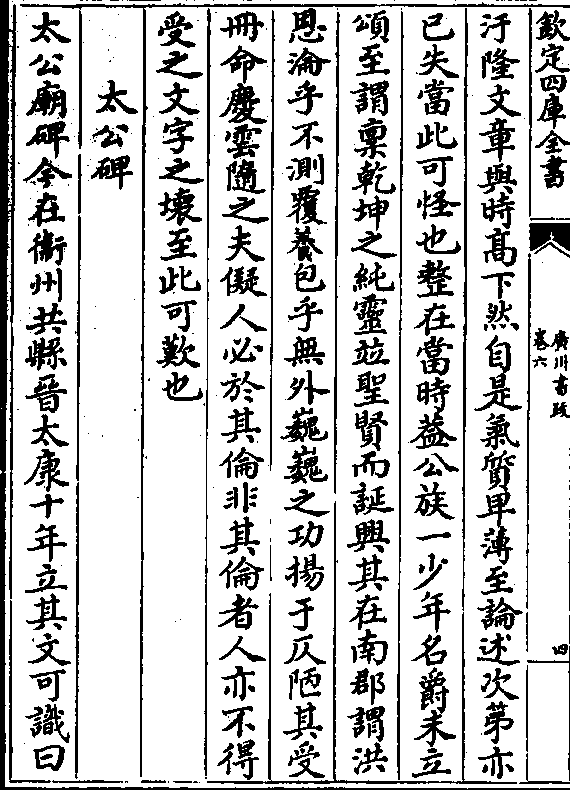 欽定四庫全書
廣川書跋
卷六
四
汙隆文章與時髙下然自是氣質卑薄至論述次第亦
已失當此可怪也整在當時葢公族一少年名爵未立
頌至謂稟乾坤之純靈竝聖賢而誕興其在南郡謂洪
恩淪乎不測覆養包乎無外巍巍之功揚于仄陋其受
冊命慶雲隨之夫儗人必於其倫非其倫者人亦不得
受之文字之壊至此可歎也
太公碑
太公廟碑今在衞州共縣晉太康十年立其文可識曰